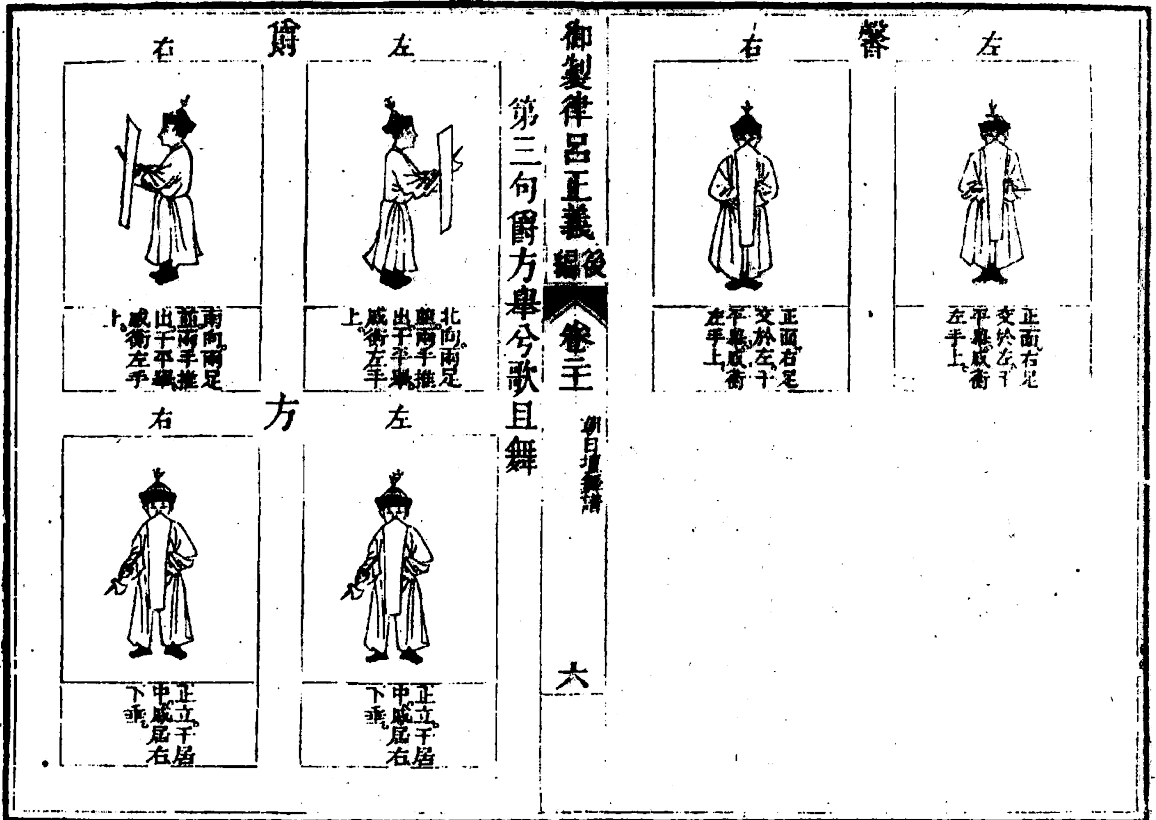 馨
左
正面右足
交於左干
平舉戚衡
左手上
右
正面右足
交於左干
平舉戚衡
左手上
御製律呂正義後編
卷二十
朝日壇舞譜
六
第三句爵方舉兮歌且舞
爵
左
北向兩足
並兩手推
出干平舉
戚衡左手
上
右
南向兩足
並兩手推
出干平舉
戚衡左手
上
方
左
正立干居
中戚居右
下垂
右
正立干居
中戚居右
下垂